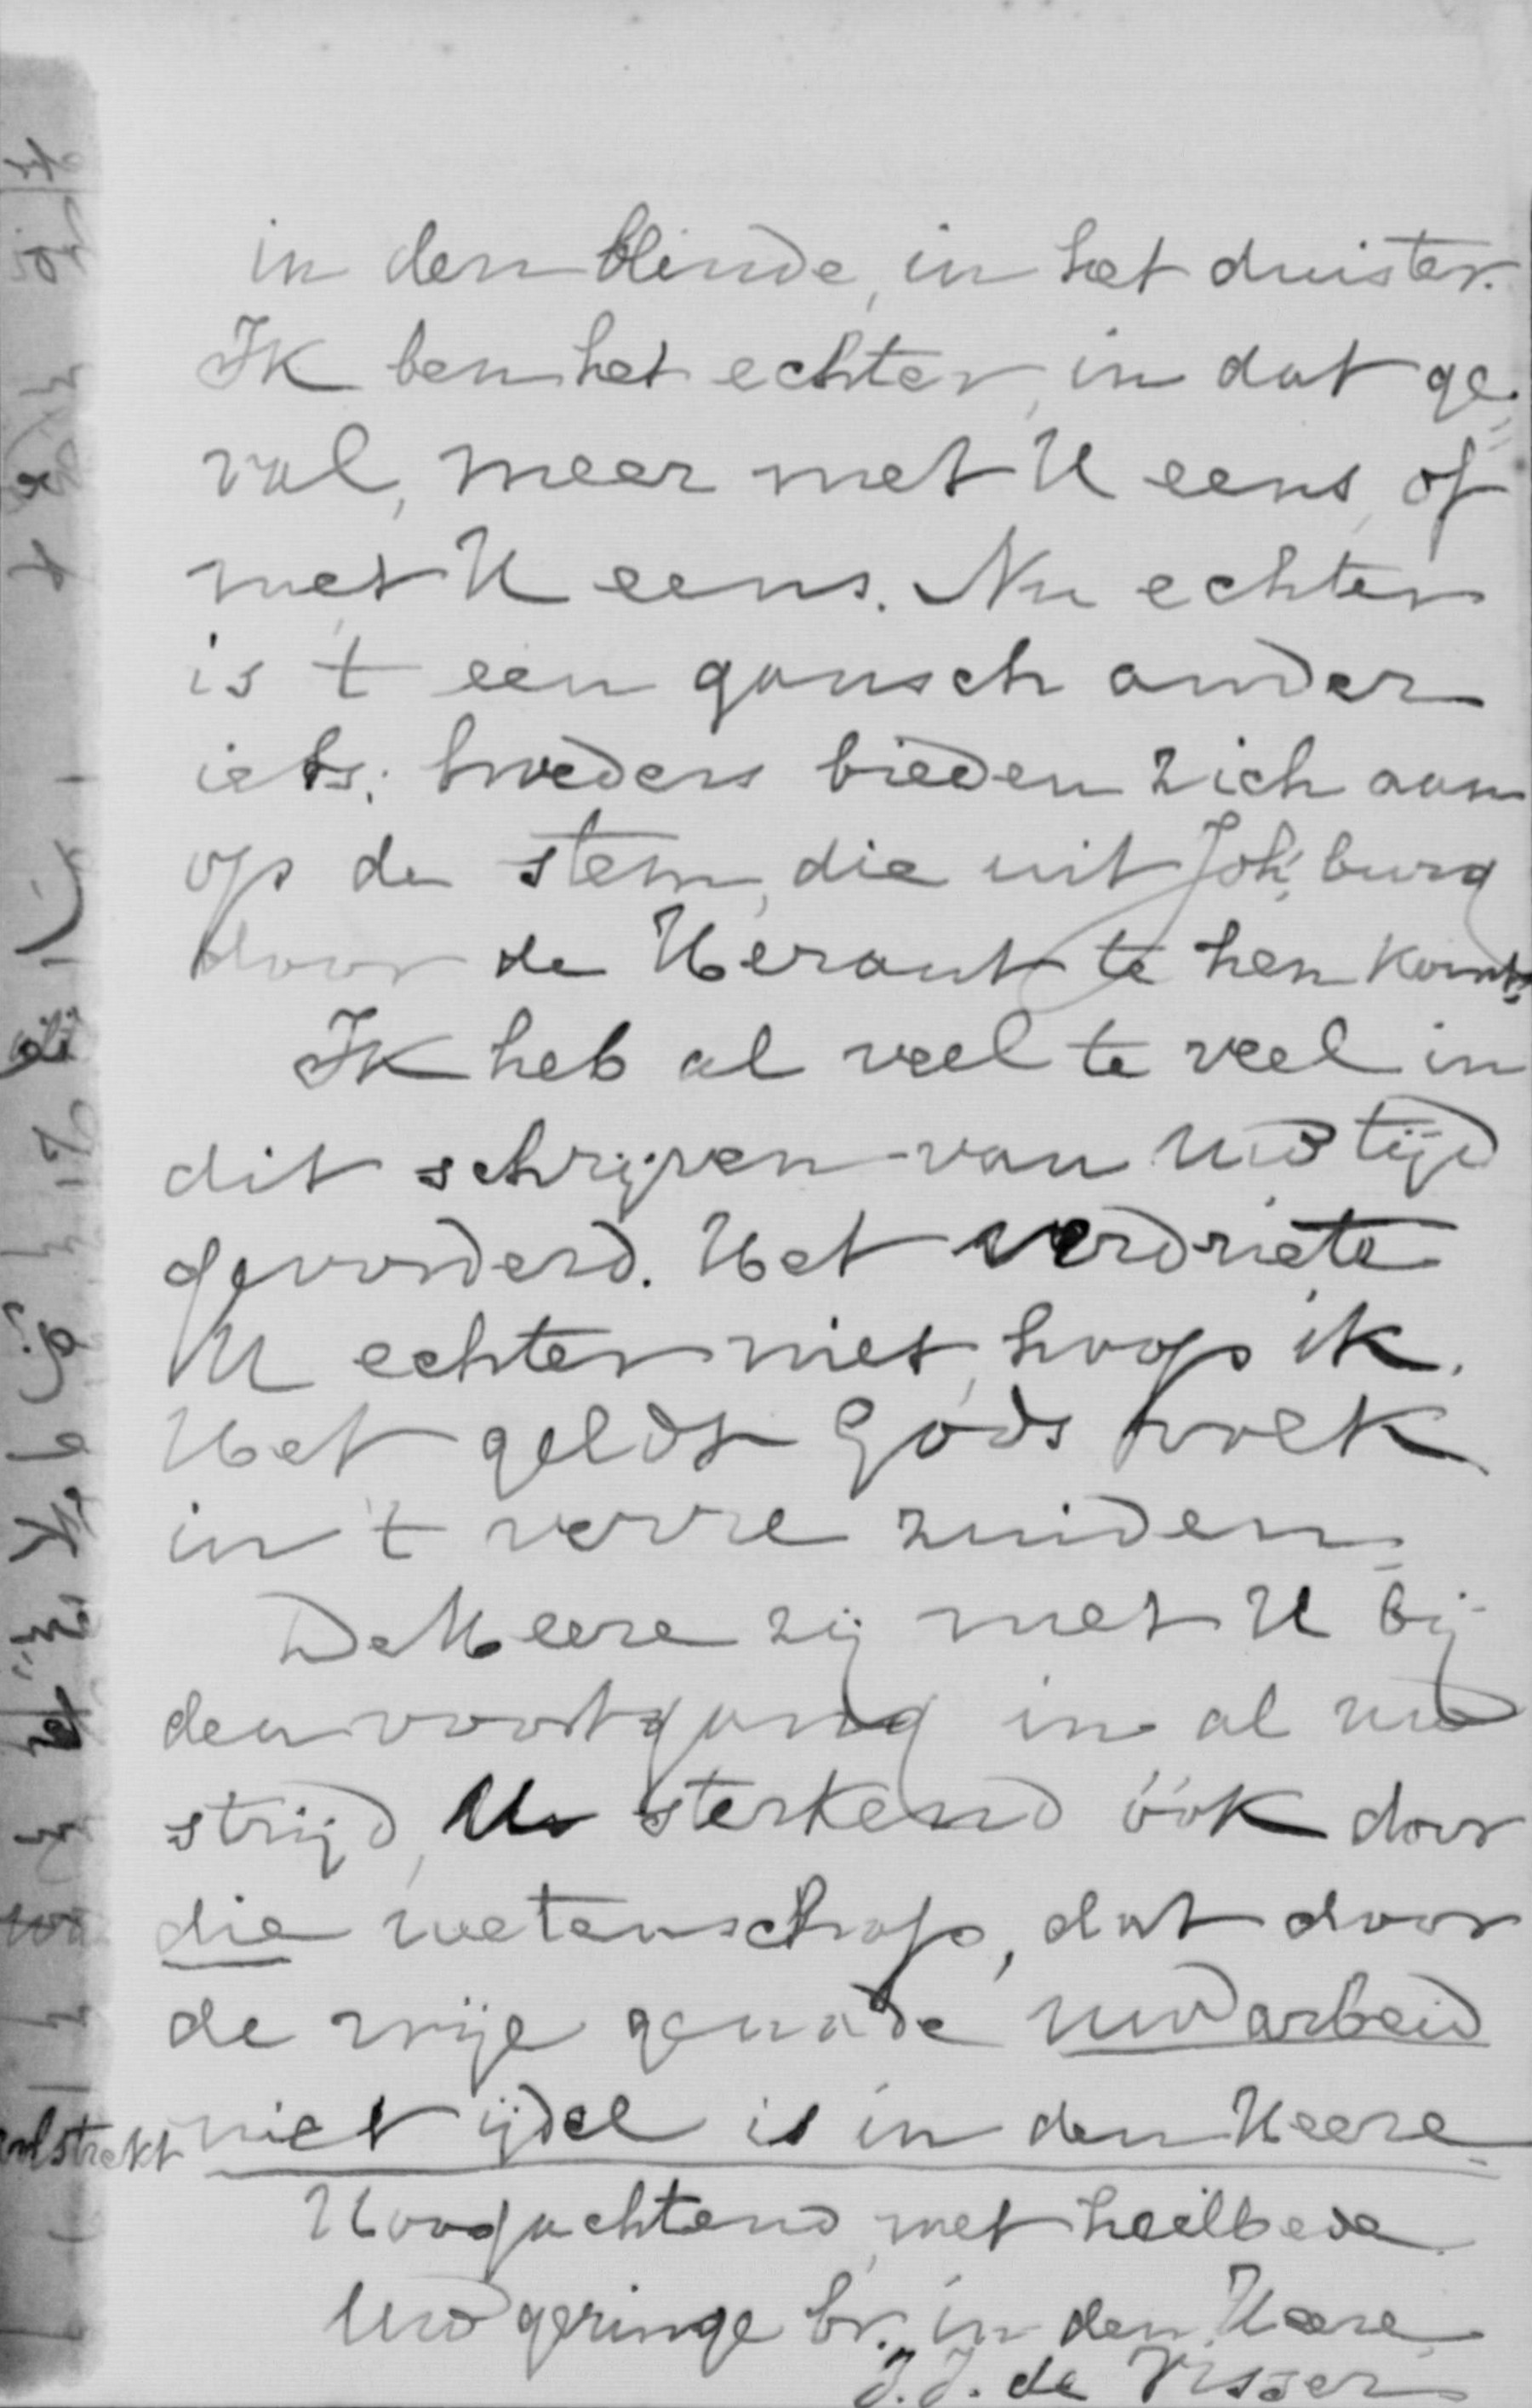 in den blinde, in het duister.
Ik ben het echter, in dat ge-
val, meer met U eens, of
met U eens. Nu echter
is 't een gansch ander
iets: broeders bieden zich aan
op de stem, die uit Joh.'burg
door de Heraut te hen komt.
Ik heb al veel te veel in
dit schrijven van Uwd tijd
gevorderd. Het verdriete
U echter niet, hoop ik.
Het geldt Gods werk
in 't verre zuiden.
De Heere zij met U bij
den voortgang in al uwd
strijd, U sterkend óók door
die wetenschap, dat door
de vrije genade uwd arbeid
volstrekt niet ijdel is in den Heere
Hoogachtend, met heilbede
Uwd geringe br. in den Heere,
J.J. de Visser